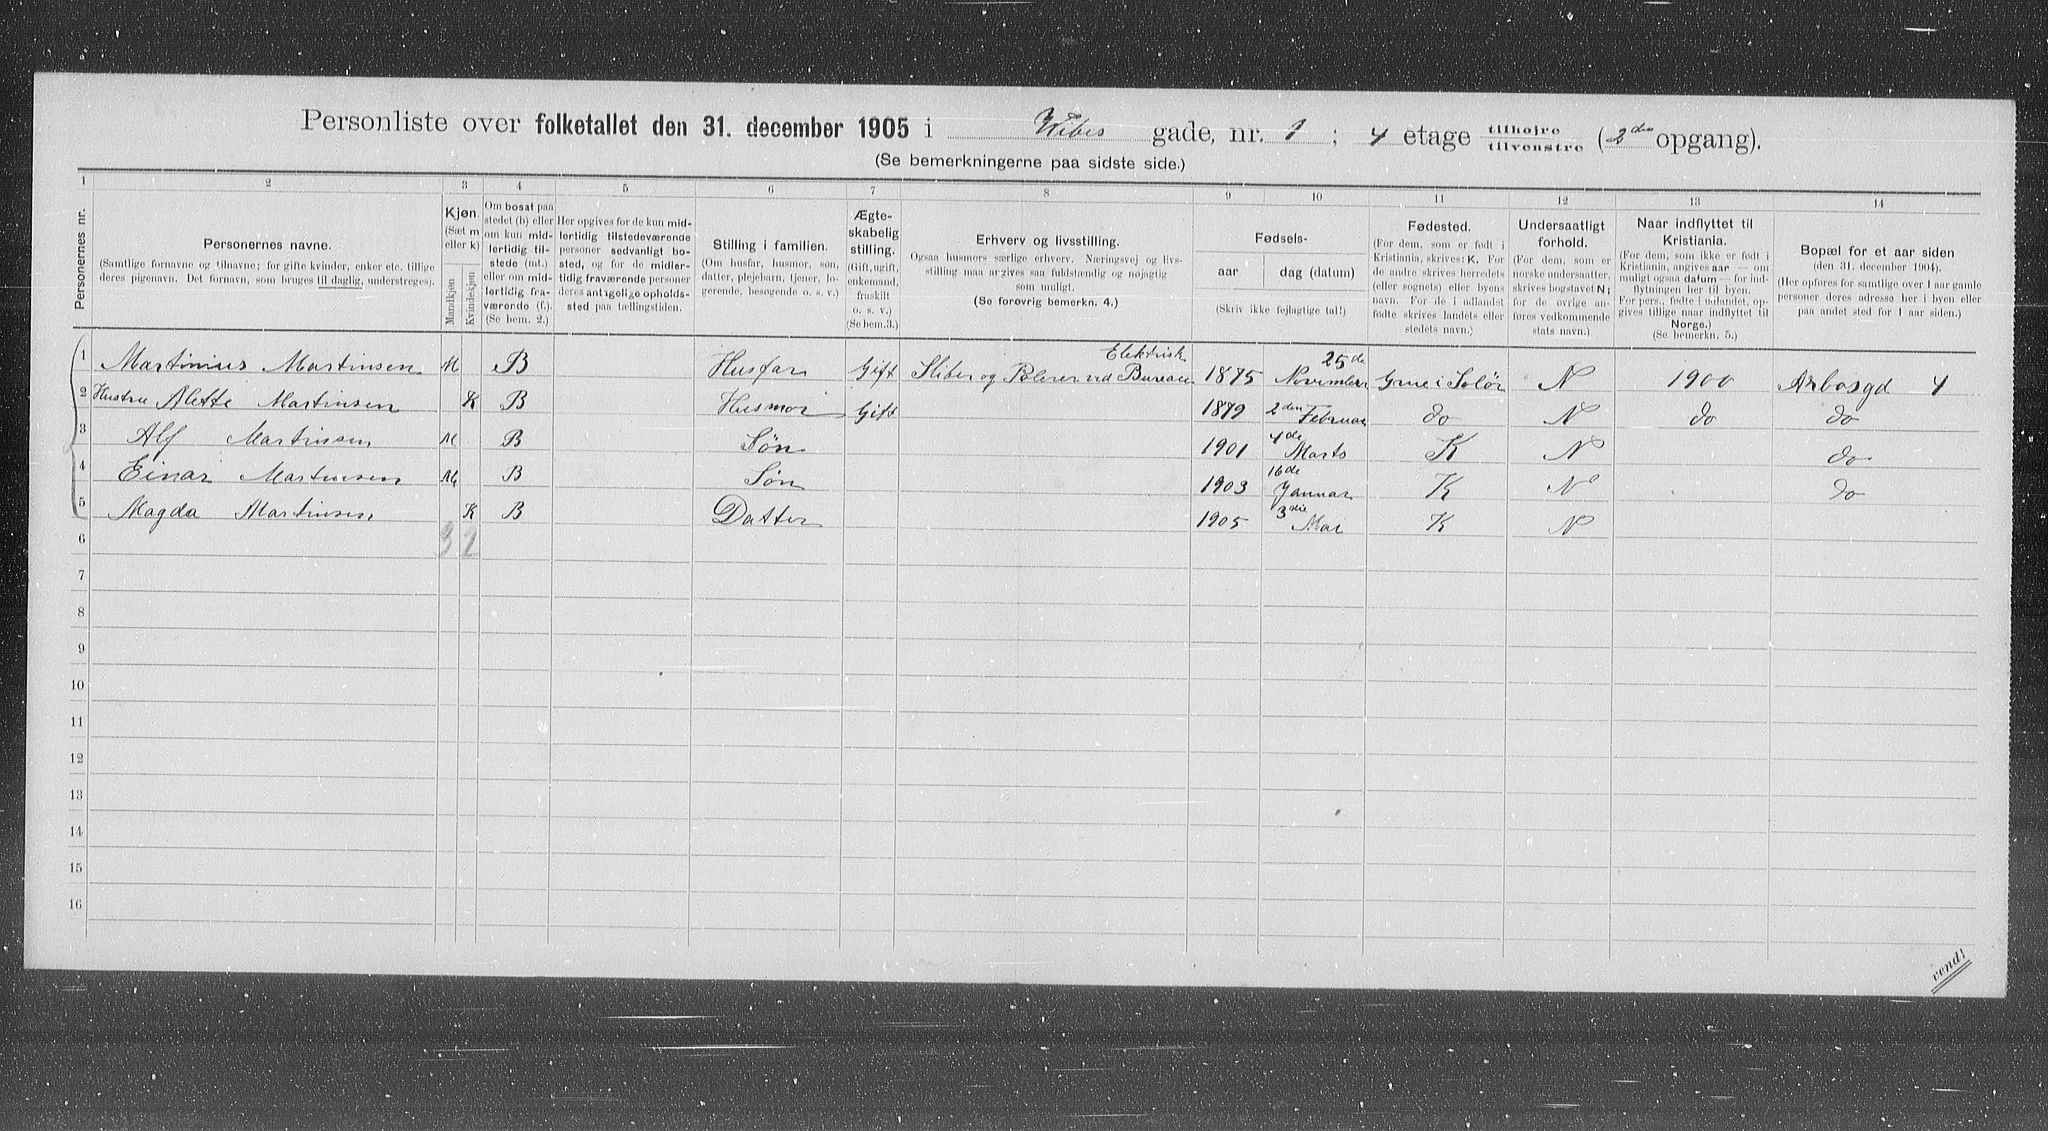 Personliste over folketallet den 31. december 1905 i Vibes gade, nr. 1; 4 etage tilhøjre tilvenstre (2den opgang).
(Se bemerkningerne paa sidste side.)
1 2 3 4 5 6 7 8 9 10 11 12 13 14
Personernes nr.
Personernes navne.
(Samtlige fornavne og tilnavne; for gifte kvinder, enker etc. tillige
deres pigenavn. Det fornavn, som bruges til daglig, understreges).
Kjøn.
(Sæt m
eller k)
Mandkjøn
Kvindekjøn
Om bosat paa
stedet (b) eller
om kun mid-
lertidig til-
stede (mt.)
eller om mid-
lertidig fra-
værende (f.).
(Se bem. 2.)
Her opgives for de kun mid-
lertidig tilstedeværende
personer sedvanlig bo-
sted, og for de midler-
tidig fraværende personer
deres antagelige opholds-
sted paa tællingstiden.
Stilling i familien.
(Om husfar, husmor, søn,
datter, plejebarn, tjener, lo-
gerende, besøgende o. s. v.)
Ægte-
skabelig
stilling.
(Gift, ugift,
enkemand,
fraskilt
o. s. v.)
(Se bem.3.)
Erhverv og livsstilling.
Ogsaa husmors særlige erhverv. Næringsvej og livs-
stilling maa angives saa fuldstændig og nøjagtig
som muligt.
(Se forøvrig bemerkn. 4.)
Fødsels-
aar dag (datum)
(Skriv ikke fejlagtige tal!)
Fødested.
(For dem, som er født i
Kristiania, skrives: K. For
de andre skrives herredets
(eller sognets) eller byens
navn. For de i udlandet
fødte skrives landets eller
stedets navn.)
Undersaatligt
forhold.
(For dem, som er
norske undersaatter,
skrives bogstavet N;
for de øvrige an-
føres vedkommende
stats navn.)
Naar indflyttet til
Kristiania.
(For dem, som ikke er født i
Kristiania, angives aar — om
muligt ogsaa datum — for ind-
flytningen her til byen.
For pers., fødte i udlandet, op-
gives tillige naar indflyttet til
Norge.)
(Se bemerkn. 5.)
Bopæl for et aar siden
(den 31. december 1904).
(Her opføres for samtlige over 1 aar gamle
personer deres adresse her i byen eller
paa andet sted for 1 aar siden.)
1 Martinius Martinsen M B Husfar Gift Sliber og Polerer ved Elektrisk Bureau 1875 25de November Grue i Solør N 1900 Arbosgd 4
2 Hustru Alette Martinsen K B Husmor Gift 1879 2den Februar do N do do
3 Alf Martinsen M B Søn 1901 4de Marts K N do
4 Einar Martinsen M B Søn 1903 16de Januar K N do
5 Magda Martinsen K B Datter 1905 3die Mai K N
6 3 2
7
8
9
10
11
12
13
14
15
16
vend!